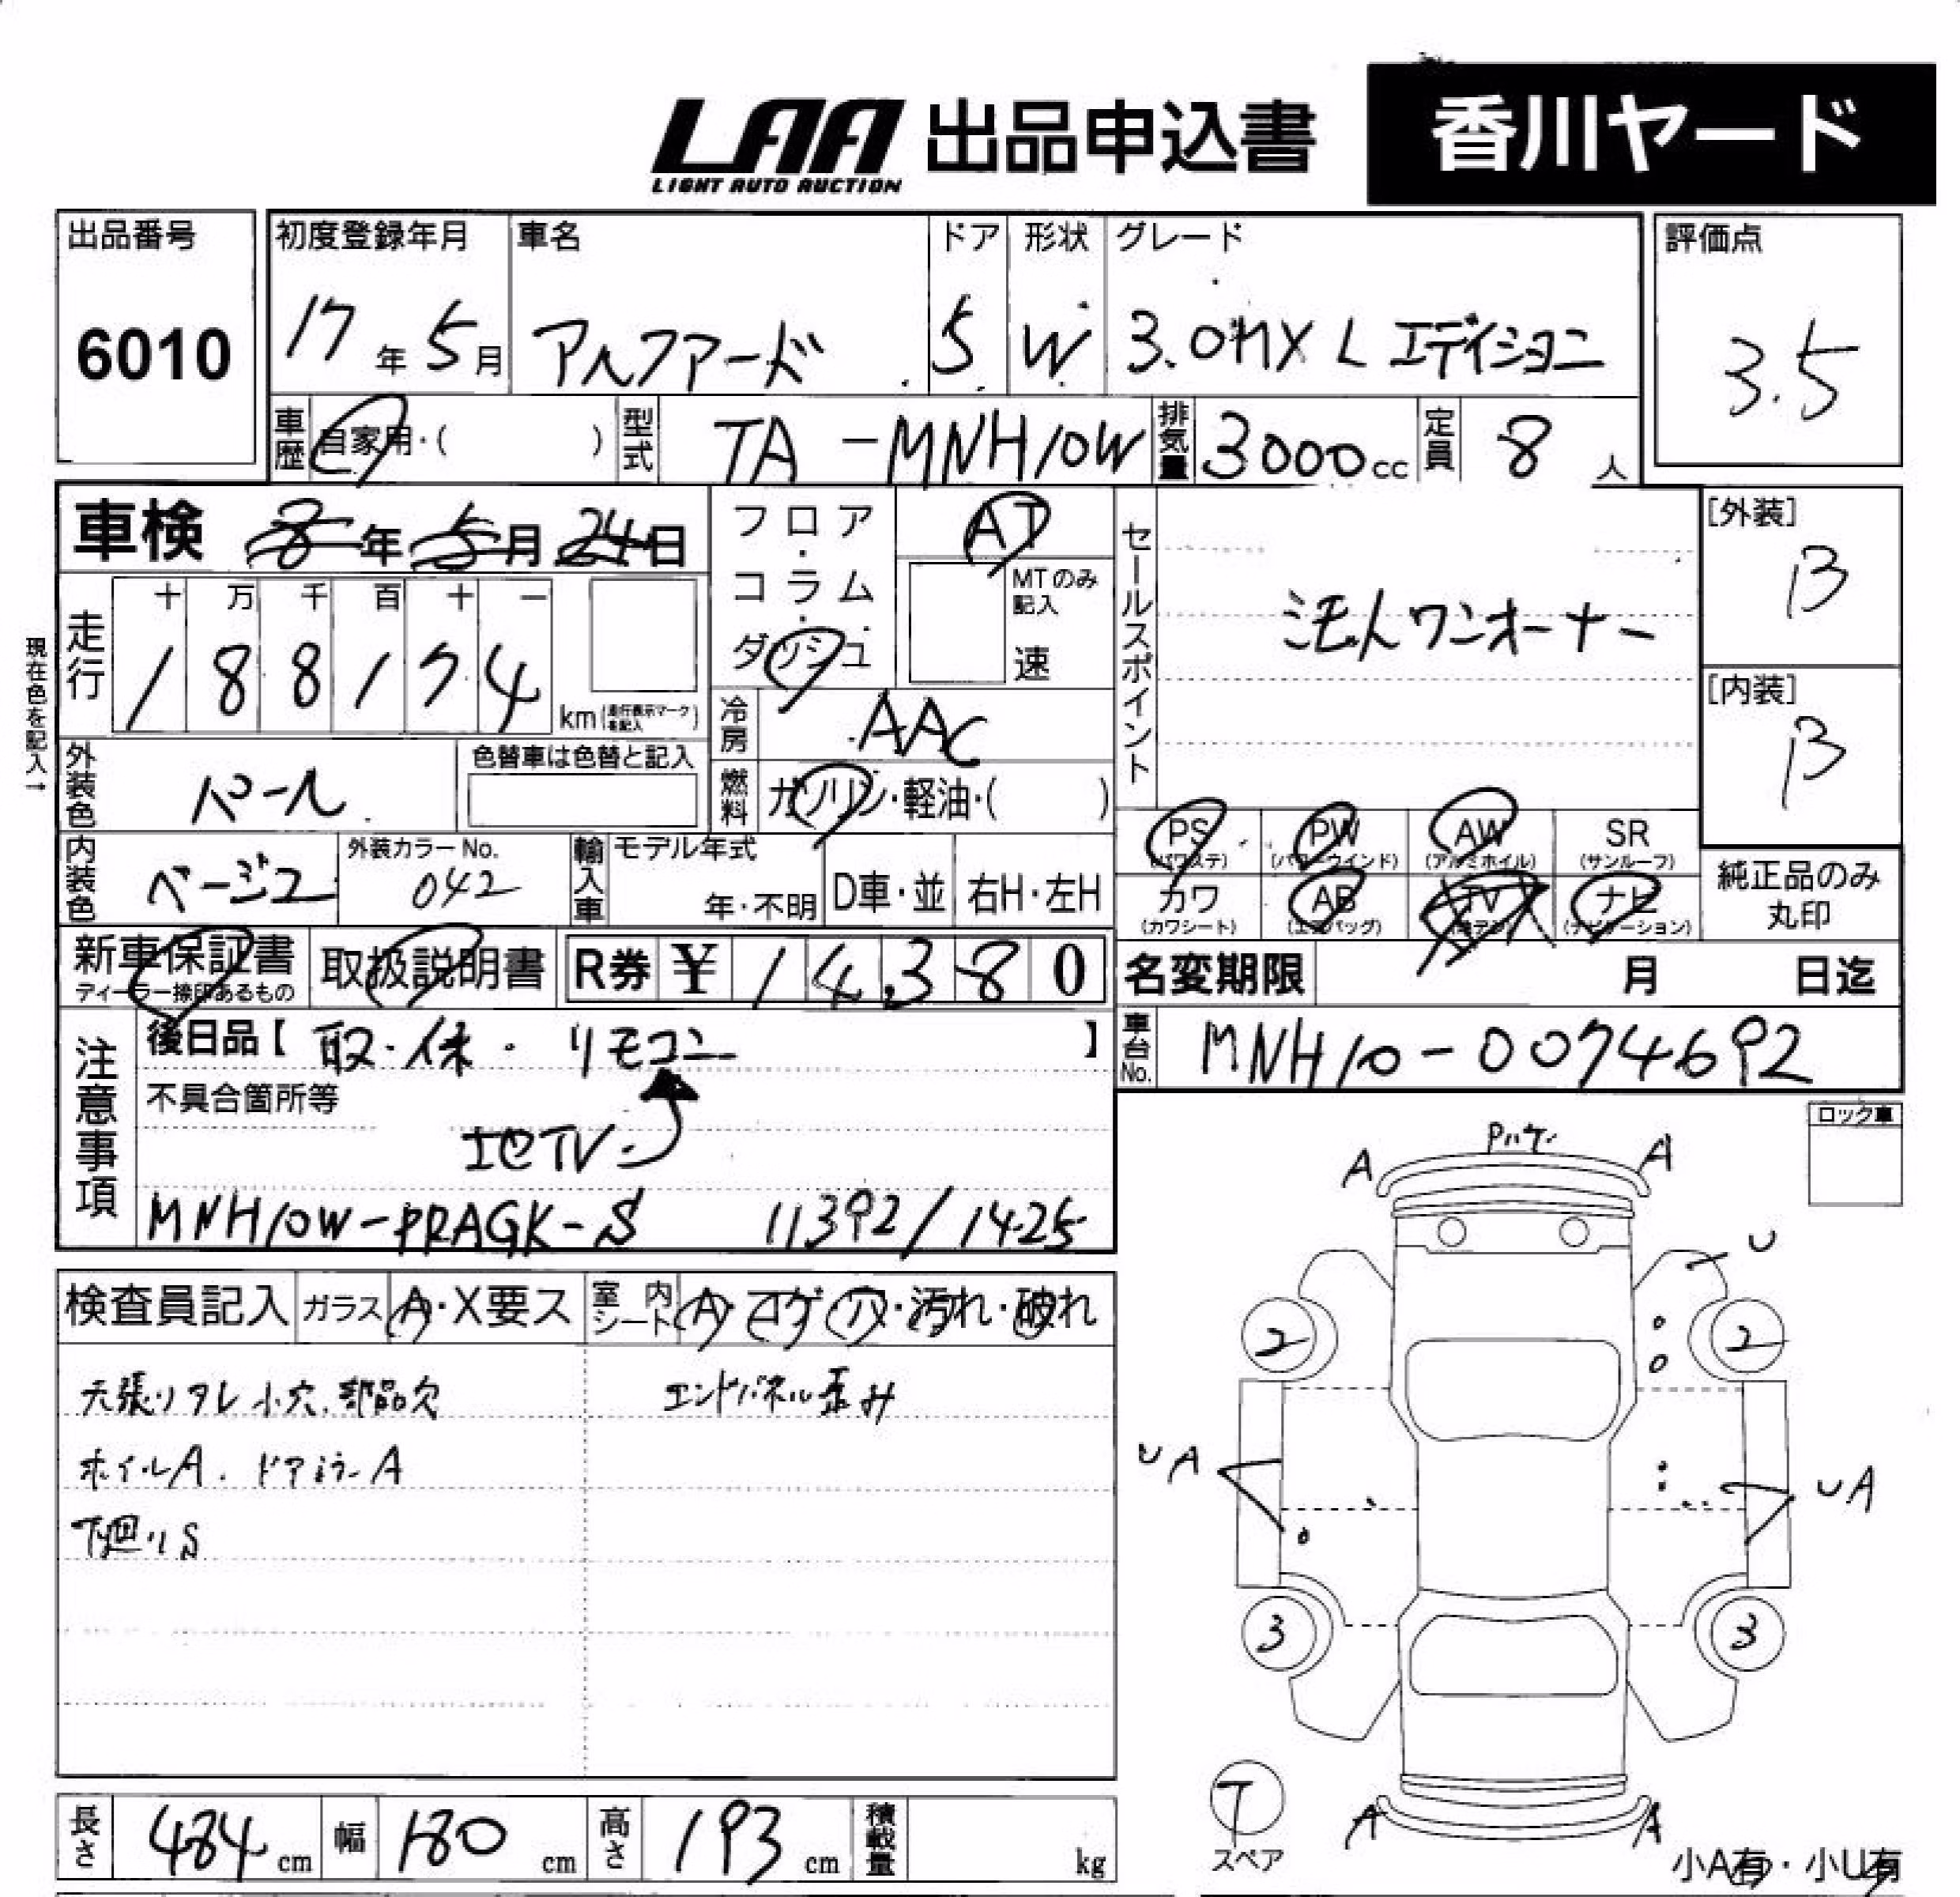 LAA 出品申込書 香川ヤード
LIGHT AUTO AUCTION
出品番号
6010
初度登録年月
17年5月
車名
アルファード
ドア
5
形状
W
グレード
3.0MX Lエディション
評価点
3.5
車歴 自家用・( )
型式 TA-MNH10W
排気量 3000cc
定員 8人
車検 8年5月24日
フロア・コラム・ダッシュ
AT
MTのみ記入
速
セールスポイント
ワンオーナー
[外装]
B
[内装]
B
現在色を記入→
走行
十 万 千 百 十 一
1 8 8 1 7 4 km(走行表示マークを記入)
冷房 AAC
外装色 パール
色替車は色替と記入
燃料 ガソリン・軽油・( )
内装色 ベージュ
外装カラーNo.
042
輸入車
モデル年式
年・不明
D車・並 右H・左H
PS(パワステ) PW(パワーウインド) AW(アルミホイル) SR(サンルーフ)
カワ(カワシート) AB(エアバッグ) TV ナビ(ナビゲーション)
純正品のみ丸印
新車保証書
ディーラー捺印あるもの
取扱説明書
R券 ¥14,380
名変期限 月 日迄
注意事項
後日品【取・保・リモコン】
不具合箇所等
地TV
MNH10W-PRAGK-S 11392/1425
車台No. MNH10-0074692
ロック車
検査員記入 ガラス A・X要ス
室内シート A・コゲ・穴・汚れ・破れ
天張りタレ 小穴、部品欠
エンドパネル歪み
ホイルA. ドアミラーA
下廻りS
A A
U
2 2
UA UA
3 3
T
スペア
A A
小A有・小U有
長さ 484cm
幅 180cm
高さ 193cm
積載量 kg